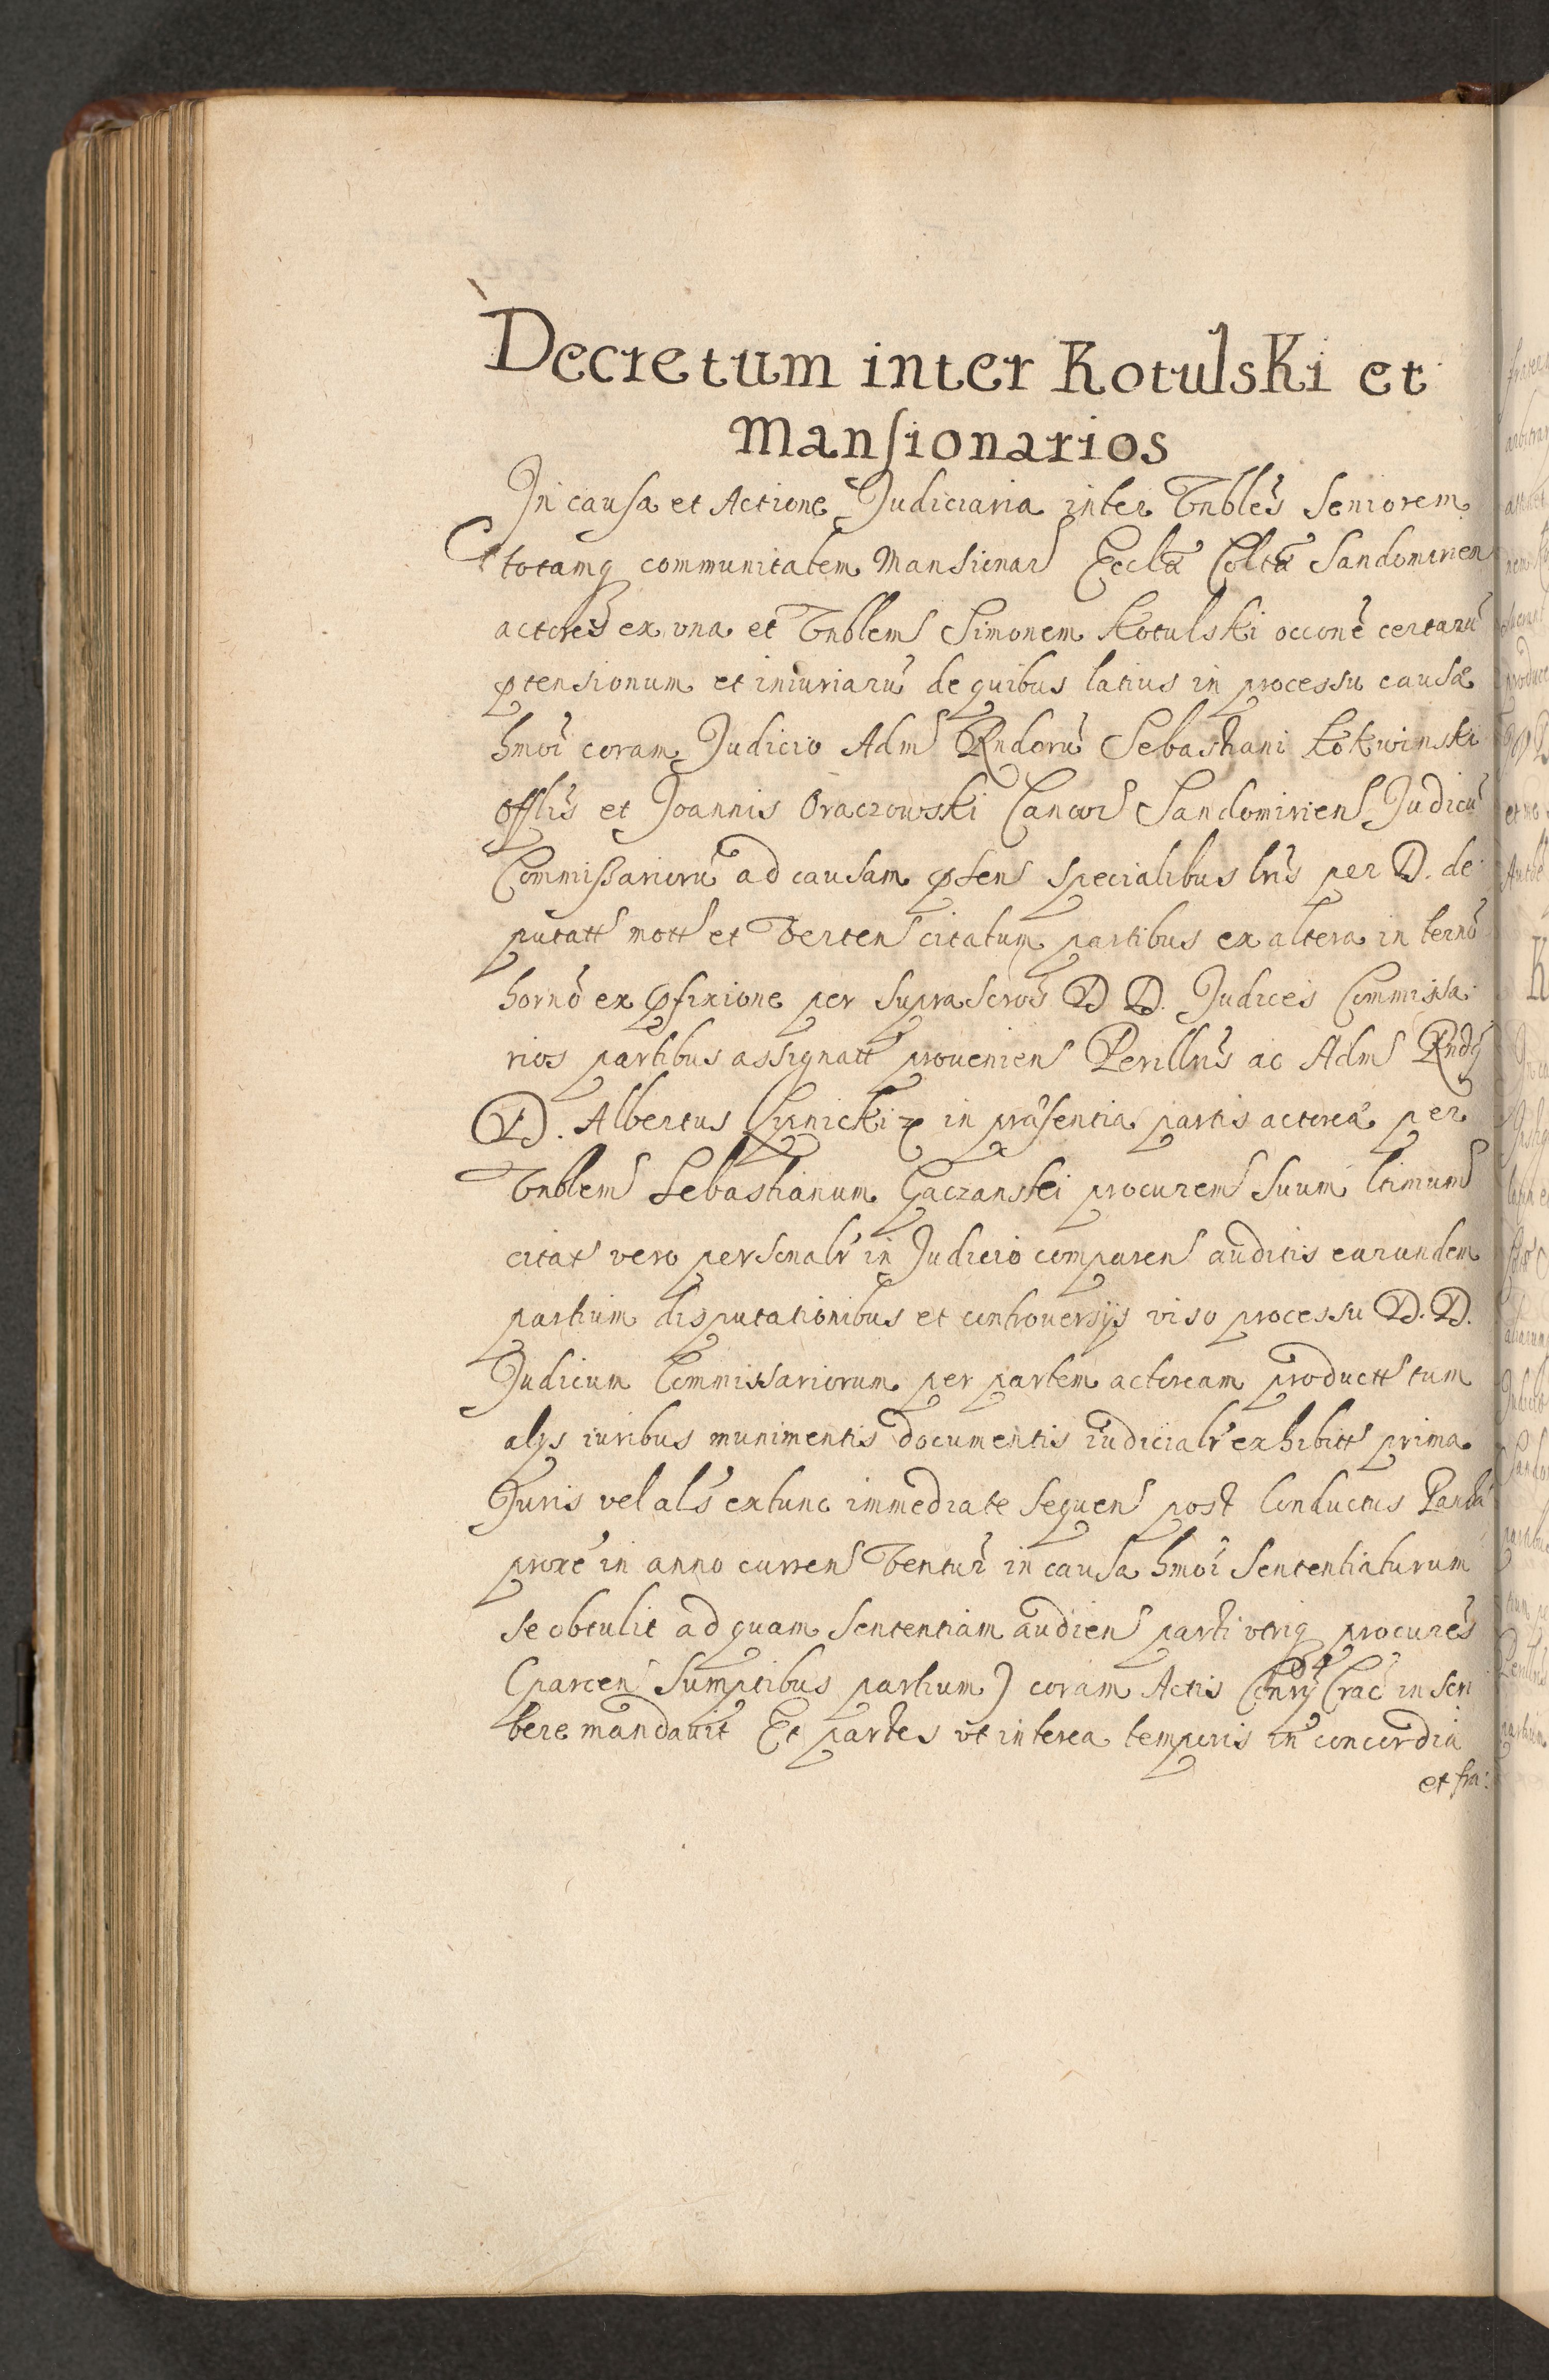 Decretum inter Kotulski et
Mansionarios
In causa et Actione Judiciaria inter Vnbles Seniorem
totamq communitatem Mansionar Eccliæ Coltæ Sandomirien
actores ex vna et Vnblem Simonem Kotulski occone certaru
ptensionum et iniuriaru de quibus latius in processu causæ
hmoi coram Judicio Adm Rndoru Sebastiani Kokwinski
offlis et Joannis Oraczowski Cancor Sandomirien Judicu
Commissarioru ad causam pnsen specialibus lris per D. de
putatt mott et Verten citatum partibus ex altera in termo
horno ex pfixione per suprascros D D. Judices Commissa
rios partibus assignatt prouenien Perillris ac Adm Rndq
D. Albertus Lipnicki in præsentia partis actoreæ per
Vnblem Sebastianum Gaczanski procurem suum ltimum
citat vero personalr in Judicio comparen auditis earundem
partium disputationibus et controuersijs viso processu D. D.
Judicum Commissariorum per partem actoream productt tum
alijs iuribus munimentis documentis iudicialr exhibitt prima
Juris vel als extunc immediate sequen post Conductus
proxe in anno curren Ventur in causa hmoi sententiaturum
se obtulit ad quam sententiam audien parti vtriq procures
(parcen sumptibus partium) coram Actis Conrij Crac in scri
bere mandauit Et partes vt interea temporis in concordia
et fra: